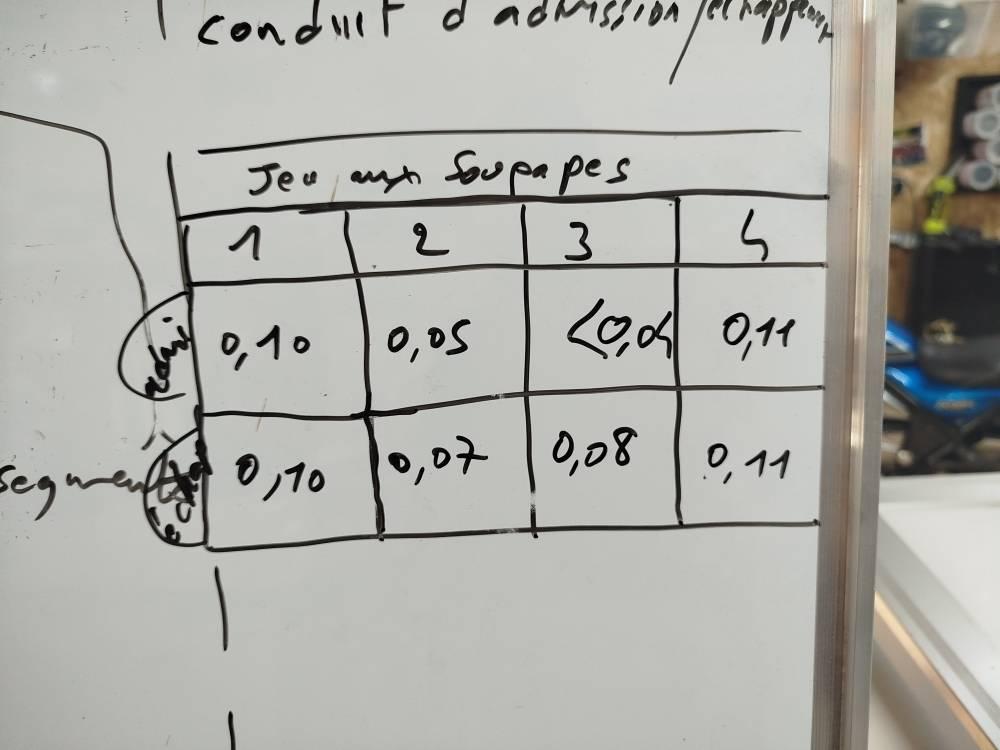 conduit d'admission/échappement
Jeu aux Soupapes
1 2 3 4
admi 0,10 0,05 <0,04 0,11
segment
échap 0,10 0,07 0,08 0,11